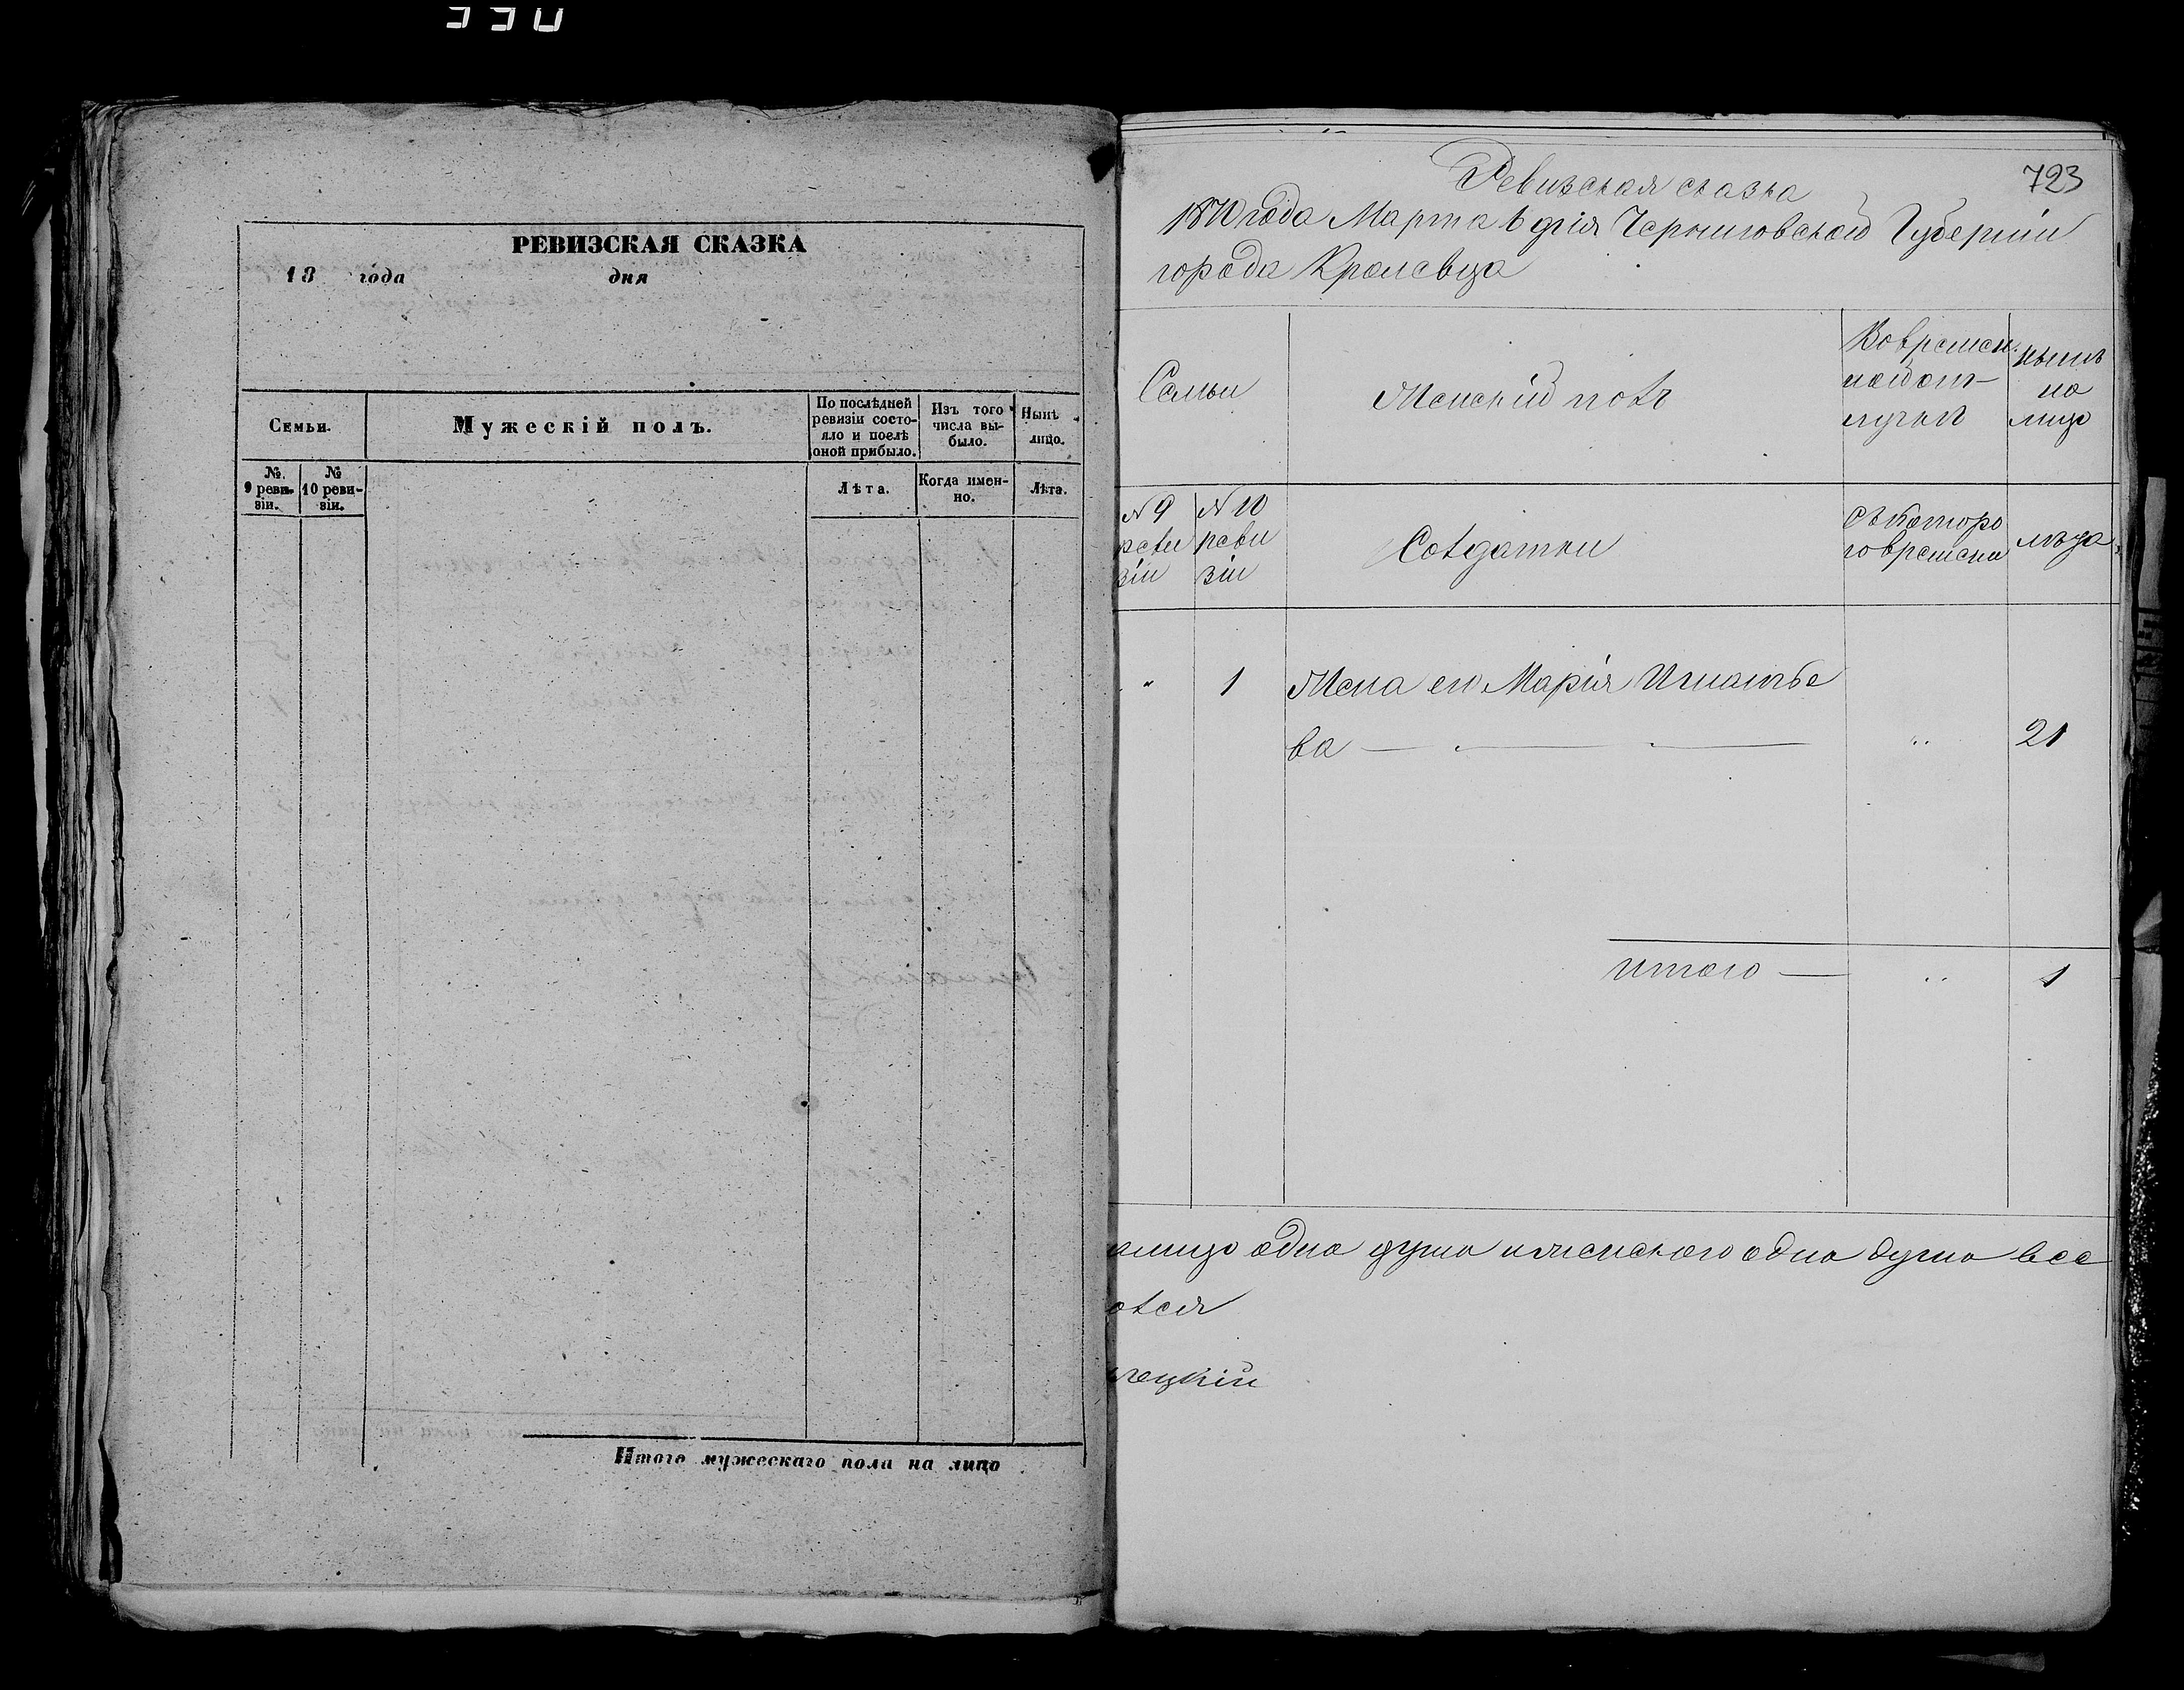 330
РЕВИЗСКАЯ СКАЗКА
18 года дня
Семьи.
Мужескій полъ.
По послѣдней
ревизіи состо-
яло и послѣ
оной прибыло.
Изъ того
числа вы-
было.
Нынѣ
лицо.
№
9 реви-
зіи.
№
10 реви-
зіи.
Лѣта.
Когда имен-
но.
Лѣта.
Итого мужескаго пола на лицо
723
Ревизская сказка
1870 года Марта 6 дня Черниговской Губерніи
города Кролевца
Семьи
Женскій полъ
Во времен.
ной от-
лучкѣ
нынѣ
на
лицо
N 9
реви
зіи
N 10
реви
зіи
Солдатки
съ котора
го времени
лѣта
" 1 Жена его Марія Игнатье
ва — " 21
Итого — " 1
алицо одна душа и женскаго одна душа все
лецкій